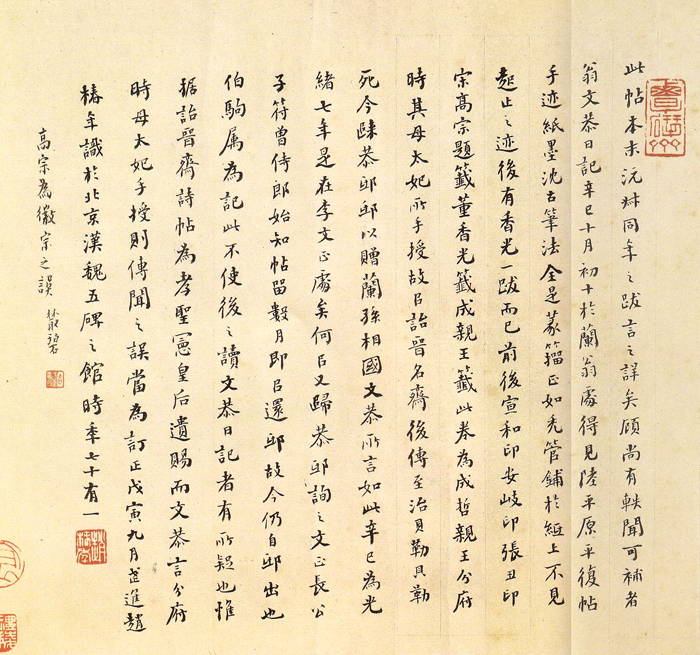 此帖本末沅叔同年之跋言之詳矣顧尚有軼聞可補者
翁文恭日記辛巳十月初十於蘭翁處得見陸平原平復帖
手迹紙墨沈古筆法全是篆籀正如禿管鋪於紙上不見
起止之迹後有香光一跋而已前後宣和印安岐印張丑印
宗高宗題籤董香光籤成親王籤此卷為成哲親王分府
時其母太妃所手授故㠯詒晉名齋後傳至治貝勒貝勒
死今歸恭邸邸以贈蘭孫相國文恭所言如此辛巳為光
緒七年是在李文正處矣何㠯又歸恭邸詢之文正長公
子符曾侍郎始知帖留數月即㠯還邸故今仍自邸出也
伯駒屬為記此不使後之讀文恭日記者有所疑也惟
据詒晉齋詩帖為孝聖憲皇后遺賜而文恭言分府
時母太妃手授則傳聞之誤當為訂正戊寅九月芷進趙
椿年識於北京漢魏五碑之館時年七十有一
高宗為徽宗之誤